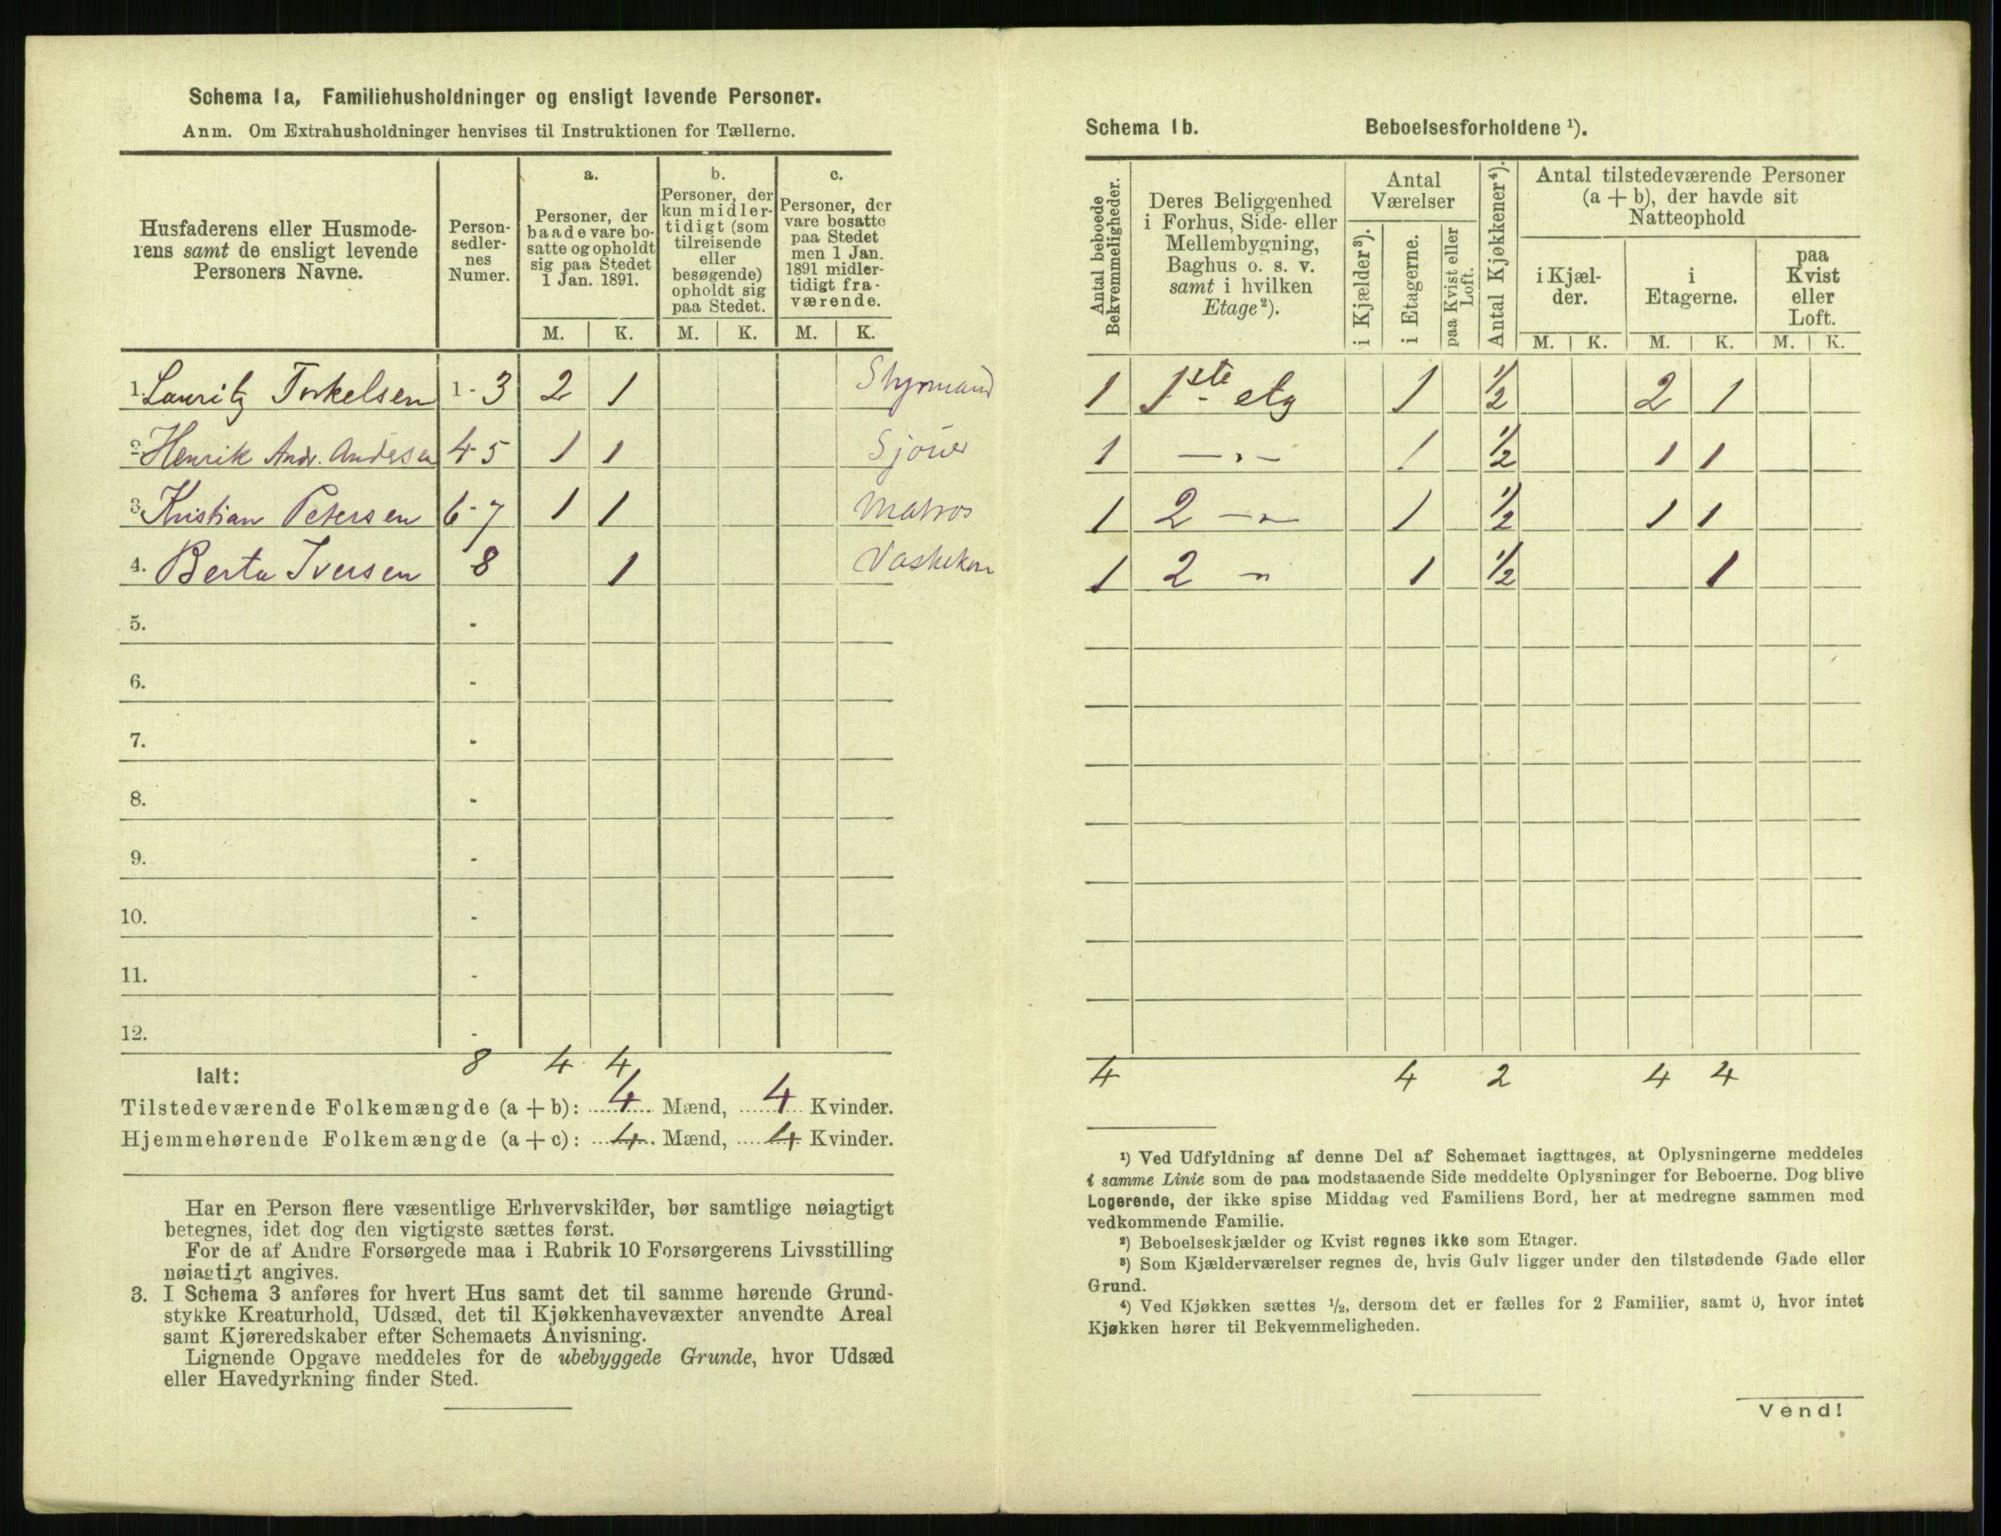 Schema 1a, Familiehusholdninger og ensligt levende Personer.
Anm. Om Extrahusholdninger henvises til Instruktionen for Tællerne.
Husfaderens eller Husmode-
rens samt de ensligt levende
Personers Navne.
Person-
sedler-
nes
Numer.
a.
Personer, der
baade vare bo-
satte og opholdt
sig paa Stedet
1 Jan. 1891.
b.
Personer, der
kun midler-
tidigt (som
tilreisende
eller
besøgende)
opholdt sig
paa Stedet.
c.
Personer, der
vare bosatte
paa Stedet
men 1 Jan.
1891 midler-
tidigt fra-
værende.
M. K. M. K. M. K.
1. Lauritz Torkelsen 1-3 2 1 Styrmand
2. Henrik Andr. Andersen 4-5 1 1 Sjöuer
3. Kristian Petersen 6-7 1 1 Matros
4. Berta Iversen 8 1 Vaskekon
5. -
6. -
7. -
8. -
9. -
10. -
11. -
12. -
8 4 4
Ialt:
Tilstedeværende Folkemængde (a + b): 4 Mænd, 4 Kvinder.
Hjemmehørende Folkemængde (a + c): 4 Mænd, 4 Kvinder.
Har en Person flere væsentlige Erhvervskilder, bør samtlige nøiagtigt
betegnes, idet dog den vigtigste sættes først.
For de af Andre Forsørgede maa i Rubrik 10 Forsørgerens Livsstilling
nøiagtigt angives.
3. I Schema 3 anføres for hvert Hus samt det til samme hørende Grund-
stykke Kreaturhold, Udsæd, det til Kjøkkenhavevæxter anvendte Areal
samt Kjøreredskaber efter Schemaets Anvisning.
Lignende Opgave meddeles for de ubebyggede Grunde, hvor Udsæd
eller Havedyrkning finder Sted.
Schema 1b. Beboelsesforholdene ¹).
Antal beboede
Bekvemmeligheder.
Deres Beliggenhed
i Forhus, Side- eller
Mellembygning,
Baghus o. s. v.
samt i hvilken
Etage²).
Antal
Værelser
i Kjælder³).
i Etagerne.
paa Kvist eller
Loft.
Antal Kjøkkener⁴).
Antal tilstedeværende Personer
(a + b), der havde sit
Natteophold
i Kjæl-
der.
i
Etagerne.
paa
Kvist
eller
Loft.
M. K. M. K. M. K.
1 1ste etg 1 1/2 2 1
1 — „ — 1 1/2 1 1
1 2 — „ — 1 1/2 1 1
1 2 — „ 1 1/2 1
4 4 2 4 4
¹) Ved Udfyldning af denne Del af Schemaet iagttages, at Oplysningerne meddeles
i samme Linie som de paa modstaaende Side meddelte Oplysninger for Beboerne. Dog blive
Logerende, der ikke spise Middag ved Familiens Bord, her at medregne sammen med
vedkommende Familie.
²) Beboelseskjælder og Kvist regnes ikke som Etager.
³) Som Kjælderværelser regnes de, hvis Gulv ligger under den tilstødende Gade eller
Grund.
⁴) Ved Kjøkken sættes ½, dersom det er fælles for 2 Familier, samt 0, hvor intet
Kjøkken hører til Bekvemmeligheden.
Vend!